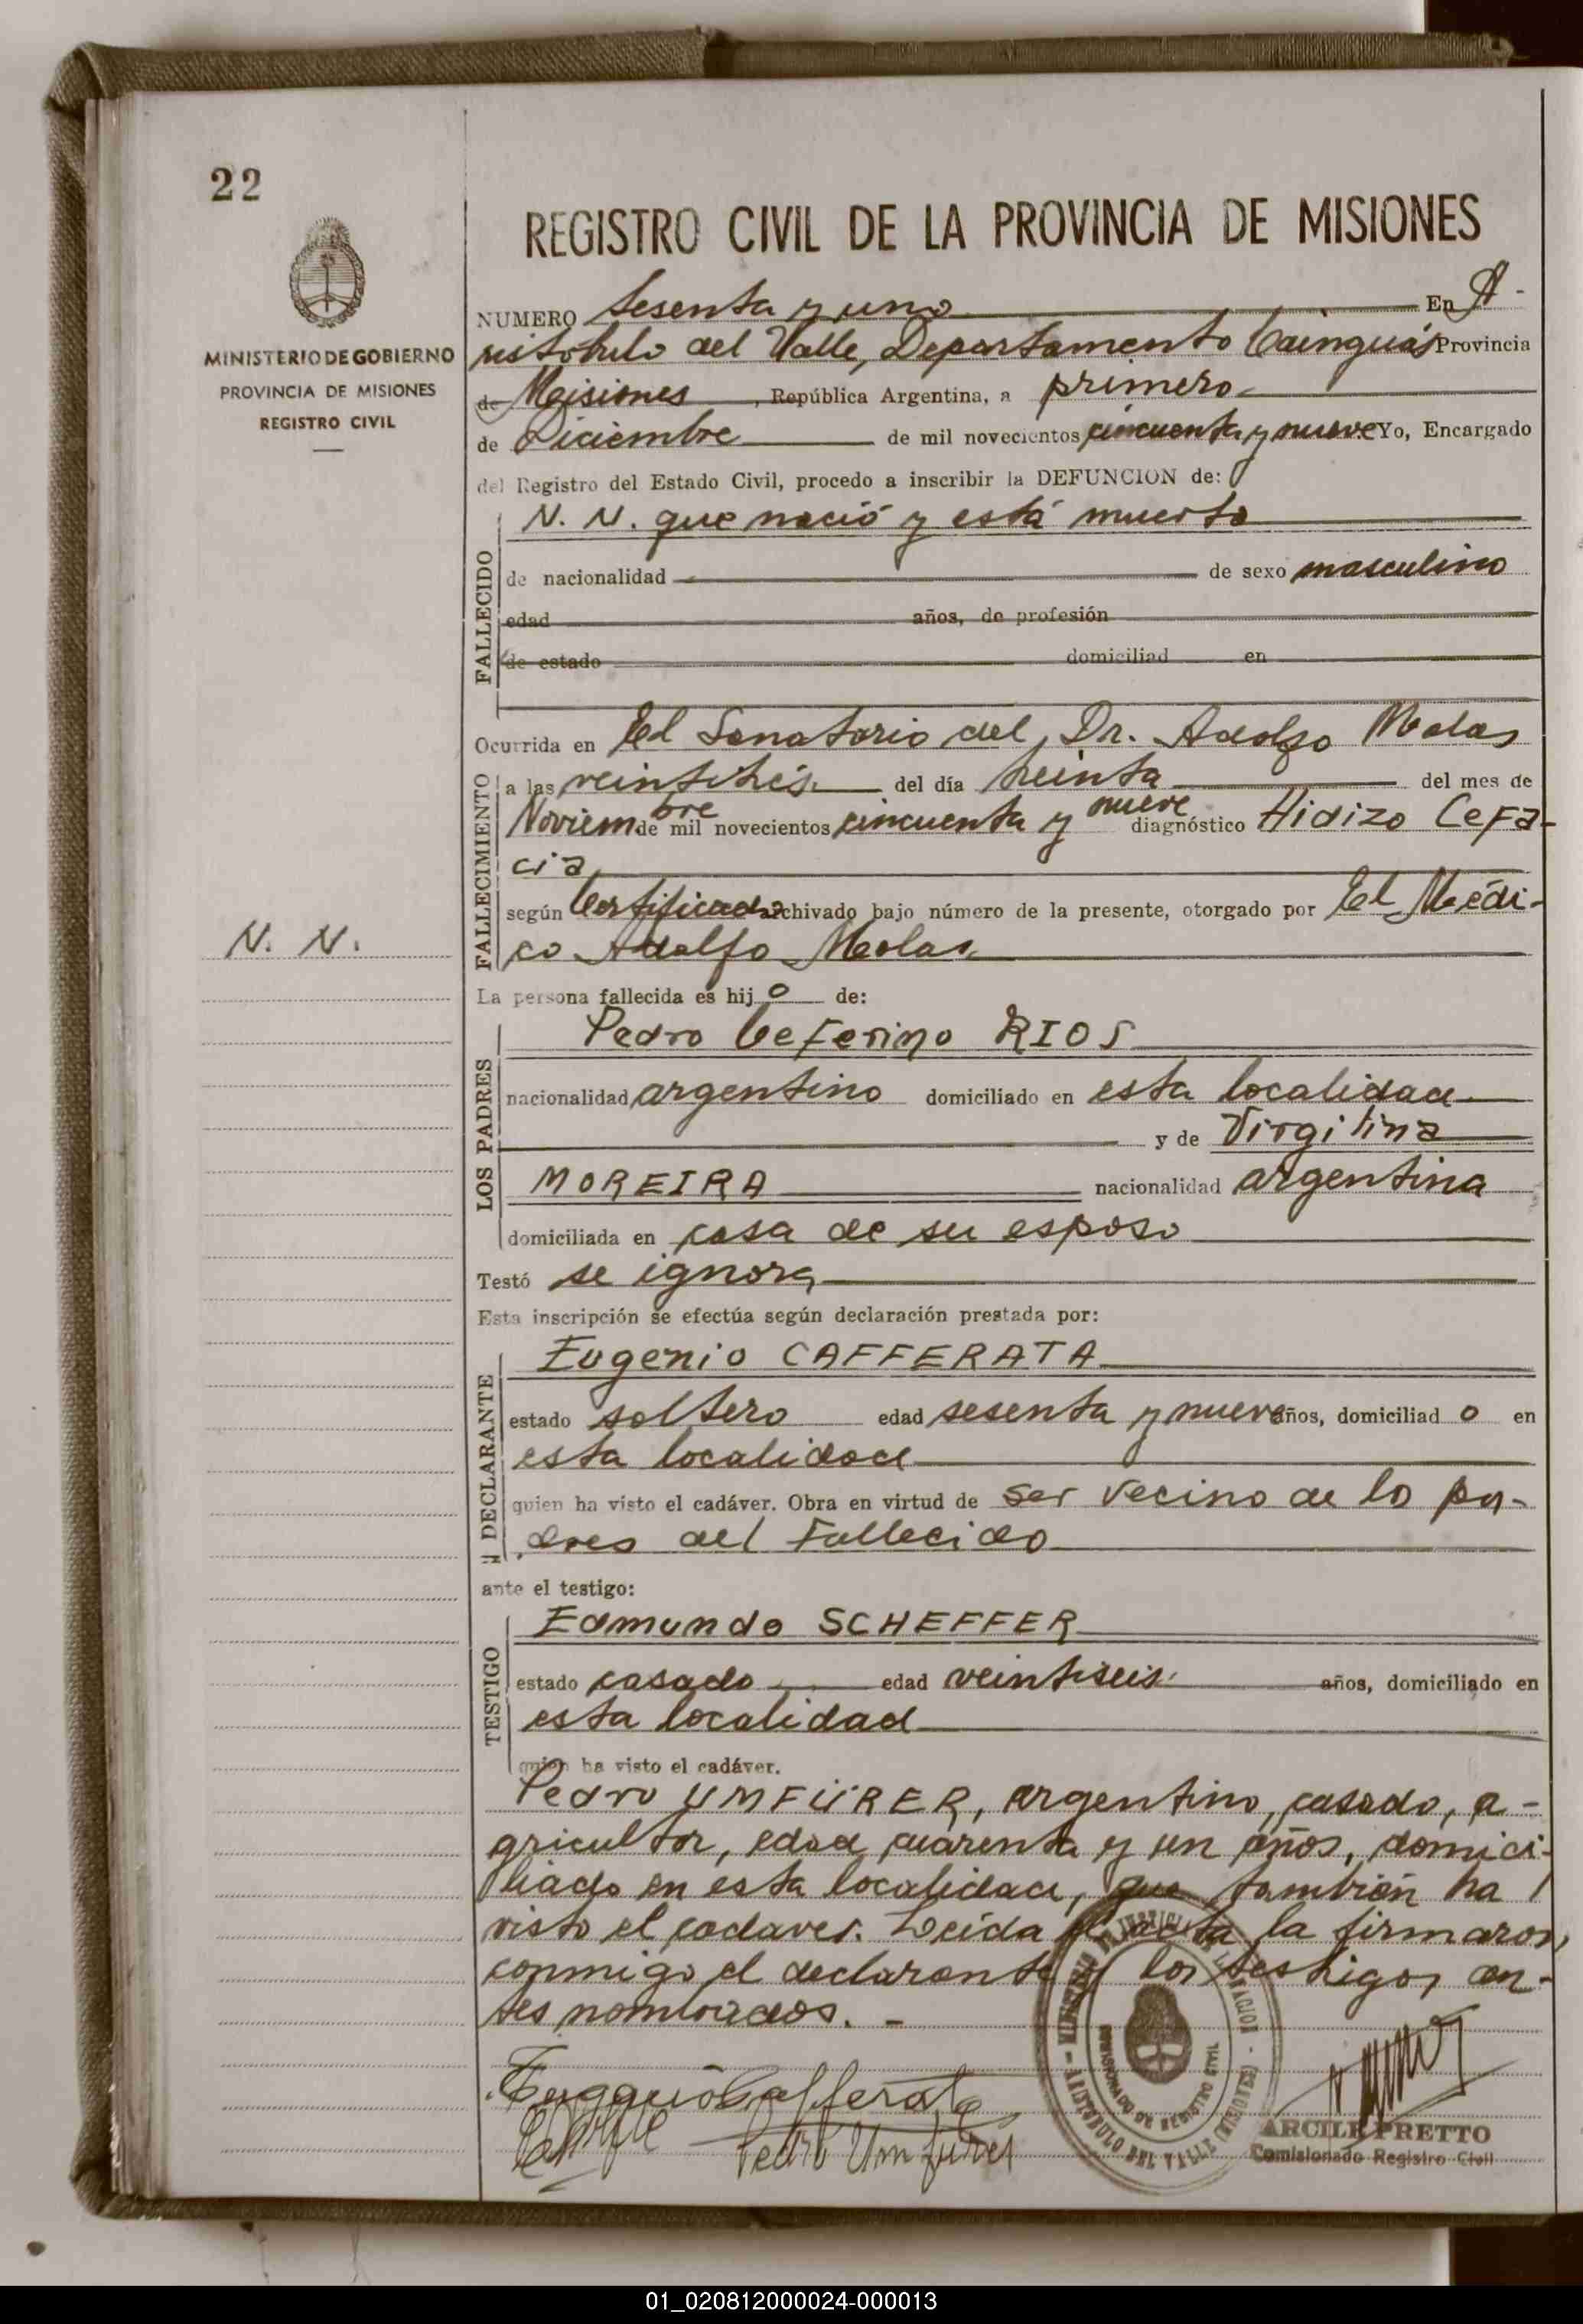 22
REGISTRO CIVIL DE LA PROVINCIA DE MISIONES
MINISTERIO DE GOBIERNO
PROVINCIA DE MISIONES
REGISTRO CIVIL
NUMERO sesenta y uno En A-
ristobulo del Valle, Departamento Cainguás Provincia
de Misiones, República Argentina, a primero
de Diciembre de mil novecientos cincuenta y nueve Yo, Encargado
del Registro del Estado Civil, procedo a inscribir la DEFUNCION de:
N. N. que nació y está muerto
FALLECIDO
de nacionalidad de sexo masculino
edad años, de profesión
de estado domiciliad en
Ocurrida en El Sanatorio del Dr. Adolfo Molas
FALLECIMIENTO
a las veintitrés del día treinta del mes de
Noviembre de mil novecientos cincuenta y nueve diagnóstico Hidizo Cefa-
cia
según Certificado archivado bajo número de la presente, otorgado por El Médi-
co Adolfo Molas
N. N.
La persona fallecida es hijo de:
LOS PADRES
Pedro Ceferino RIOS
nacionalidad argentino domiciliado en esta localidad
y de Virgilina
MOREIRA nacionalidad argentina
domiciliada en casa de su esposo
Testó se ignora
Esta inscripción se efectúa según declaración prestada por:
DECLARANTE
Eugenio CAFFERATA
estado soltero edad sesenta y nueve años, domiciliado en
esta localidad
quien ha visto el cadáver. Obra en virtud de ser vecino de lo pa-
dres del Fallecido
ante el testigo:
TESTIGO
Edmundo SCHEFFER
estado casado edad veintiseis años, domiciliado en
esta localidad
quien ha visto el cadáver.
Pedro UMFÜRER, argentino, casado, a-
gricultor, edad cuarenta y un años, domici-
liado en esta localidad, que también ha
visto el cadaver. Leída el acta la firmaron
conmigo el declarante y los testigos an-
tes nombrados. -
Eugenio Cafferata
Pedro Umfürer
ARISTOBULO DEL VALLE (MISIONES)
ARCILE PRETTO
Comisionado Registro Civil
01_020812000024-000013